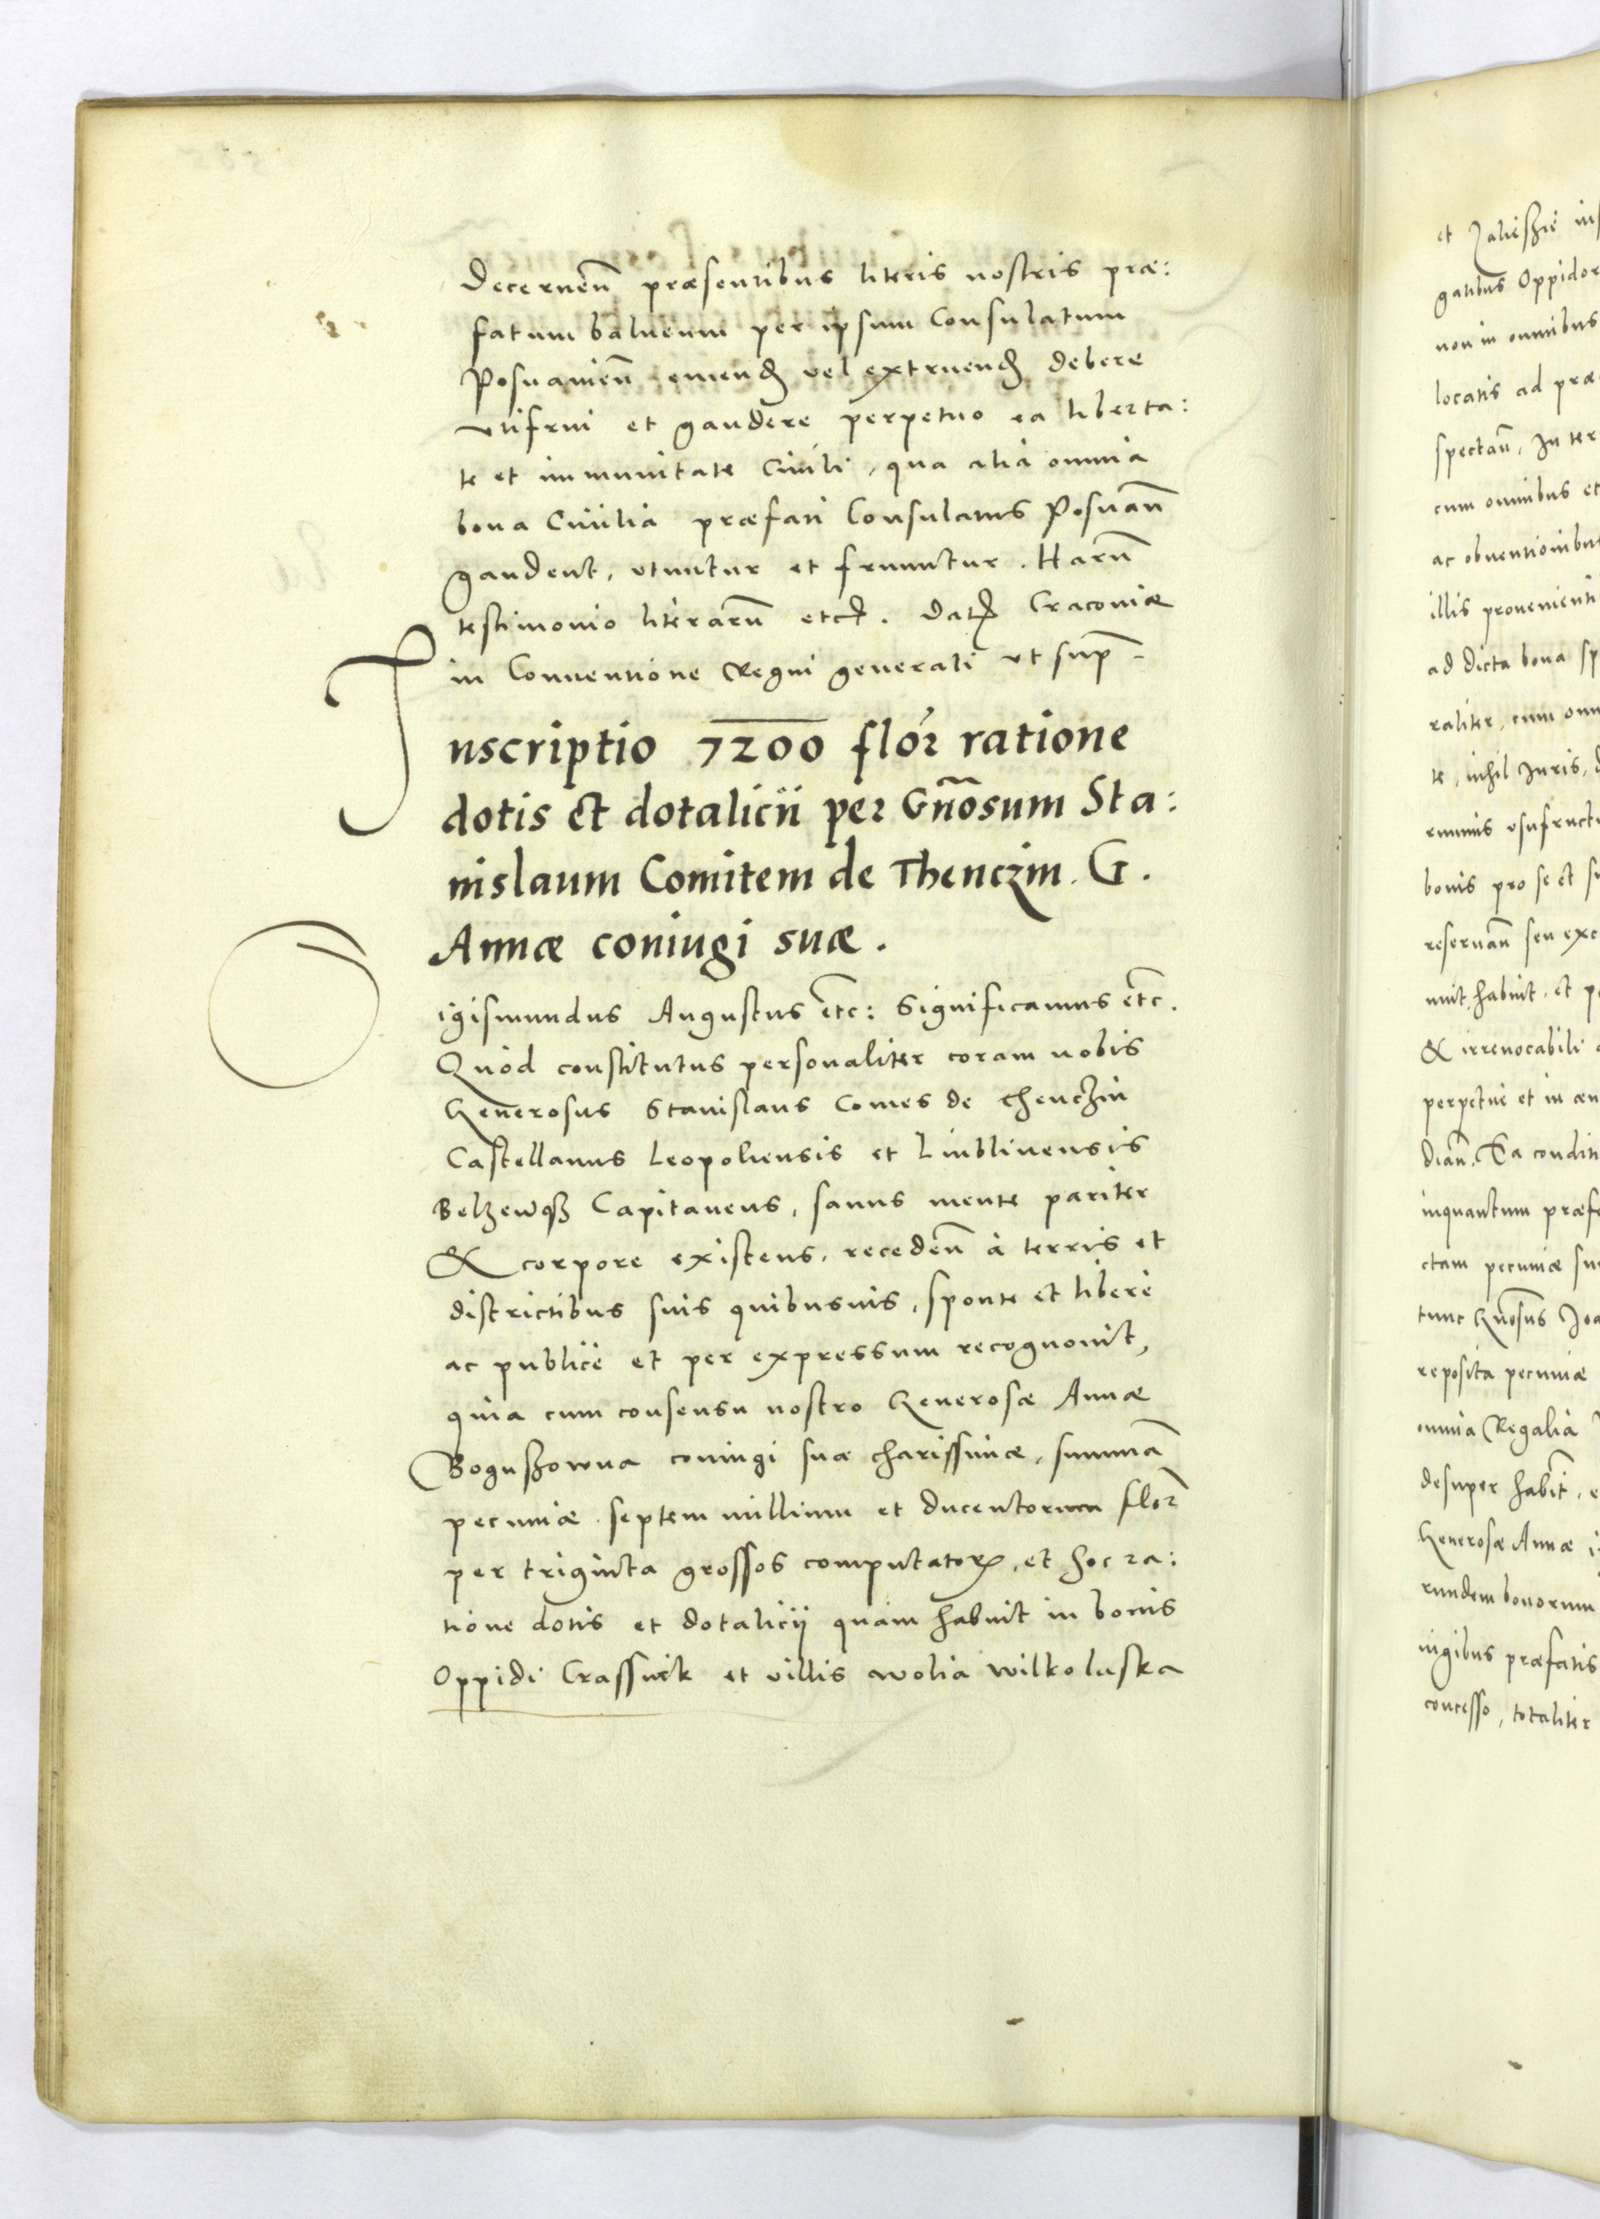 Decernen̄ præsentibus literis nostris præ:
fatum balneum per ipsum Consulatum
Posnanien̄ emend vel extruend debere
utifrui et gaudere perpetuo ea liberta:
te et immunitate Ciuili, qua alia omnia
bona Ciuilia præfati Consulatus Posnan̄
gaudent, utuntur et fruuntur. Harū
testimonio literarū etc. Dat Cracoviæ
in Conuentione Regni generali ut sup̄
Inscriptio 7200 flor ratione
dotis et dotalicii per Gn̄osum Sta:
nislaum Comitem de Thenczin. G.
Annæ coniugi suæ.
igismundus Augustus etc: Significamus etc.
Quod constitutus personaliter coram nobis
Generosus Stanislaus Comes de Thenczin
Castellanus Leopoliensis et Lublinensis
Belzeñqз Capitaneus, sanus mente pariter
& corpore existens, receden̄ à terris et
districtibus suis quibusuis, sponte et libere
ac publice et per expressum recognouit,
quia cum consensu nostro Generosæ Annæ
Boguszowna coniugi suæ charissimæ, summā
pecuniæ septem millium et ducentorum flor̄
per triginta grossos computator, et hoc ra:
tione dotis et dotalicij quam habuit in bonis
Oppidi Crassnik et villis Wolia Wilkolaska
et Zalieszie
gatibus Oppidor
non in omnibus
locatis ad præ
spectan̄, In ter
cum omnibus et
ac obuentionibus
illis prouenienti
ad dicta bona sp
raliter, cum omn
te, nihil Iuris, d
usufructu
bonis pro se et su
reseruan̄ seu exc
nuit, habuit, et p
& irreuocabili
perpetue et in æu
dian̄. Ea conditi
inquantum præf
ctam pecuniæ su
tunc Gn̄osus Joa
reposita pecuniæ
omnia Regalia
desuper habēt, e
Generosæ Annæ
rundem bonorum
iugibus præfatis
concesso, totaliter